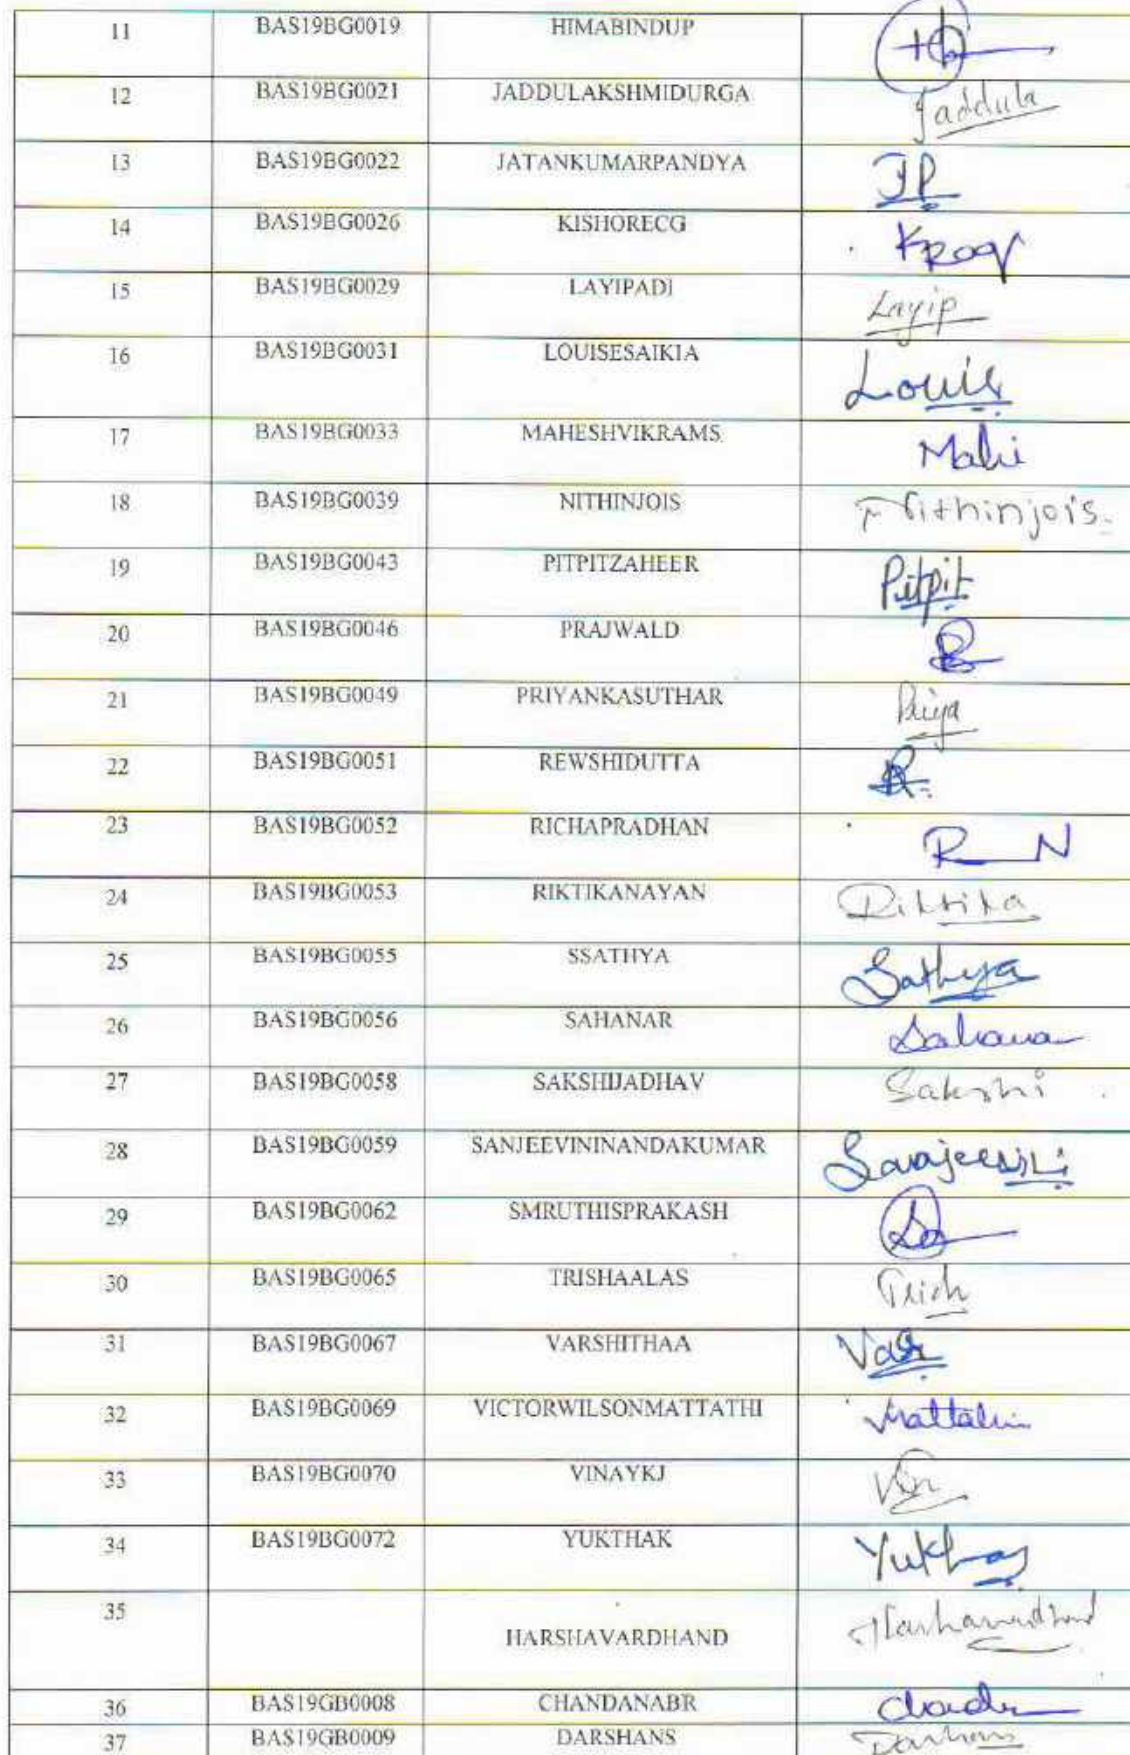 11 BAS19BG0019 HIMABINDUP
12 BAS19BG0021 JADDULAKSHMIDURGA Jaddula
13 BAS19BG0022 JATANKUMARPANDYA JP
14 BAS19BG0026 KISHORECG
15 BAS19BG0029 LAYIPADI Layip
16 BAS19BG0031 LOUISESAIKIA Louis
17 BAS19BG0033 MAHESHVIKRAMS Mahi
18 BAS19BG0039 NITHINJOIS Nithinjois.
19 BAS19BG0043 PITPITZAHEER Pitpit
20 BAS19BG0046 PRAJWALD
21 BAS19BG0049 PRIYANKASUTHAR Priya
22 BAS19BG0051 REWSHIDUTTA
23 BAS19BG0052 RICHAPRADHAN R N
24 BAS19BG0053 RIKTIKANAYAN Riktika
25 BAS19BG0055 SSATHYA Sathya
26 BAS19BG0056 SAHANAR Sahana
27 BAS19BG0058 SAKSHIJADHAV Sakshi
28 BAS19BG0059 SANJEEVININANDAKUMAR
29 BAS19BG0062 SMRUTHISPRAKASH
30 BAS19BG0065 TRISHAALAS Trish
31 BAS19BG0067 VARSHITHAA Var
32 BAS19BG0069 VICTORWILSONMATTATHI Mattathi
33 BAS19BG0070 VINAYKJ
34 BAS19BG0072 YUKTHAK
35 HARSHAVARDHAND Harshavardhand
36 BAS19GB0008 CHANDANABR
37 BAS19GB0009 DARSHANS Darshans